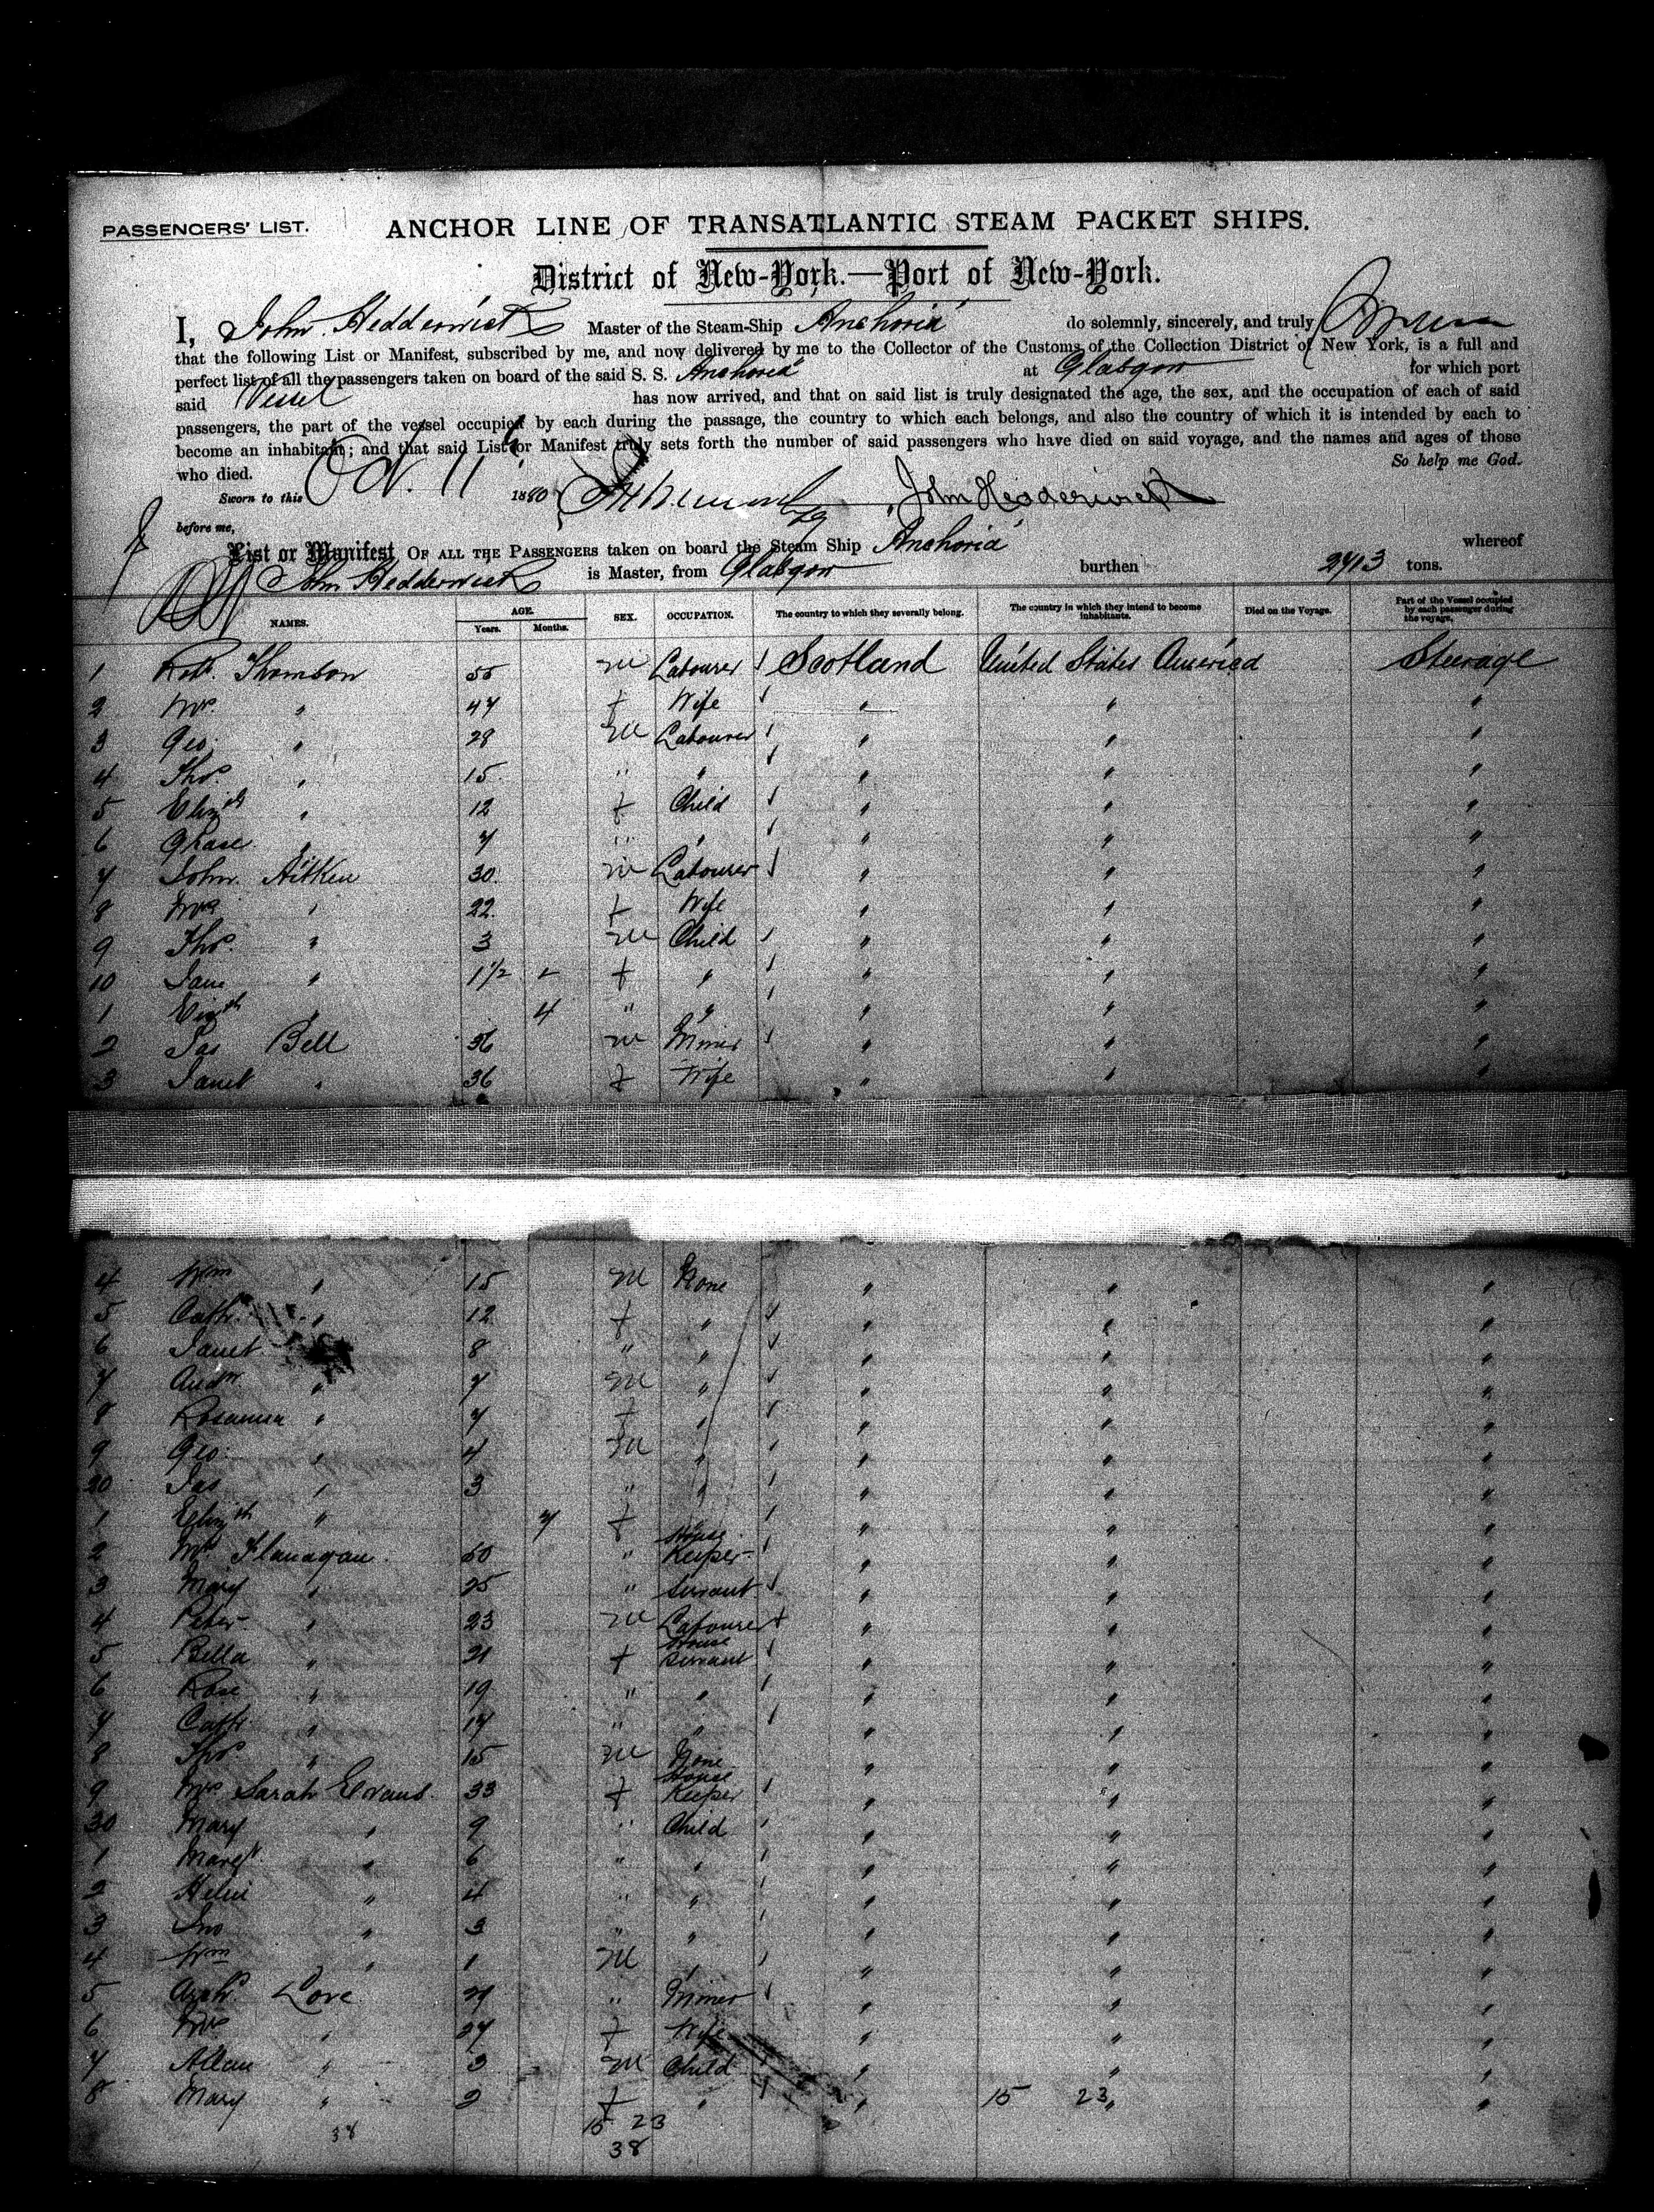 PASSENGERS' LIST.
ANCHOR LINE OF TRANSATLANTIC STEAM PACKET SHIPS.
District of New-York.—Port of New-York.
I, John Hedderwick Master of the Steam-Ship Anchoria do solemnly, sincerely, and truly
that the following List or Manifest, subscribed by me, and now delivered by me to the Collector of the Customs of the Collection District of New York, is a full and
perfect list of all the passengers taken on board of the said S. S. Anchoria at Glasgow for which port
said Vessel has now arrived, and that on said list is truly designated the age, the sex, and the occupation of each of said
passengers, the part of the vessel occupied by each during the passage, the country to which each belongs, and also the country of which it is intended by each to
become an inhabitant; and that said List or Manifest truly sets forth the number of said passengers who have died on said voyage, and the names and ages of those
who died. So help me God.
Sworn to this Oct. 11 1880 John Hedderwick
before me,
List or Manifest OF ALL THE PASSENGERS taken on board the Steam Ship Anchoria whereof
John Hedderwick is Master, from Glasgow burthen 2713 tons.
NAMES. AGE. Years. Months. SEX. OCCUPATION. The country to which they severally belong. The country in which they intend to become inhabitants. Died on the Voyage. Part of the Vessel occupied by each passenger during the voyage.
1 Robt. Thomson 55 M Labourer Scotland United States America Steerage
2 Mrs. " 47 f Wife " " "
3 Geo: " 28 M Labourer " " "
4 Thos. " 15 " " " " "
5 Elizth " 12 f Child " " "
6 Grace " 7 " " " " "
7 John Aitken 30 M Labourer " " "
8 Mrs " 22 f Wife " " "
9 Thos. " 3 M Child " " "
10 Jane " 1 1/2 f " " " "
1 Elizth " 4 " " " " "
2 Jas Bell 36 M Miner " " "
3 Janet " 36 f Wife " " "
4 Wm " 15 M None " " "
5 Cath. " 12 f " " " "
6 Janet 8 " " " " "
7 Andw. " 7 M " " " "
8 Rosanna " 7 f " " " "
9 Geo: " 4 M " " " "
20 Jas " 3 " " " " "
1 Elizth " 7 f " " " "
2 Mrs Flanagan 50 " House Keeper " " "
3 Mary " 25 " Servant " " "
4 Peter " 23 M Labourer " " "
5 Bella " 21 f House Servant " " "
6 Rose " 19 " " " " "
7 Cath " 17 " " " " "
8 Thos " 15 M None " " "
9 Mrs Sarah Evans 33 f House Keeper " " "
30 Mary " 9 " Child " " "
1 Margt. " 6 " " " " "
2 Helen " 4 " " " " "
3 Jno " 3 " " " " "
4 Wm " 1 M " " " "
5 Archd. Love 29 " Miner " " "
6 Mrs " 27 f Wife " " "
7 Allan " 3 M Child " " "
8 Mary " 2 f " " 15 23 " "
38 15 23
38